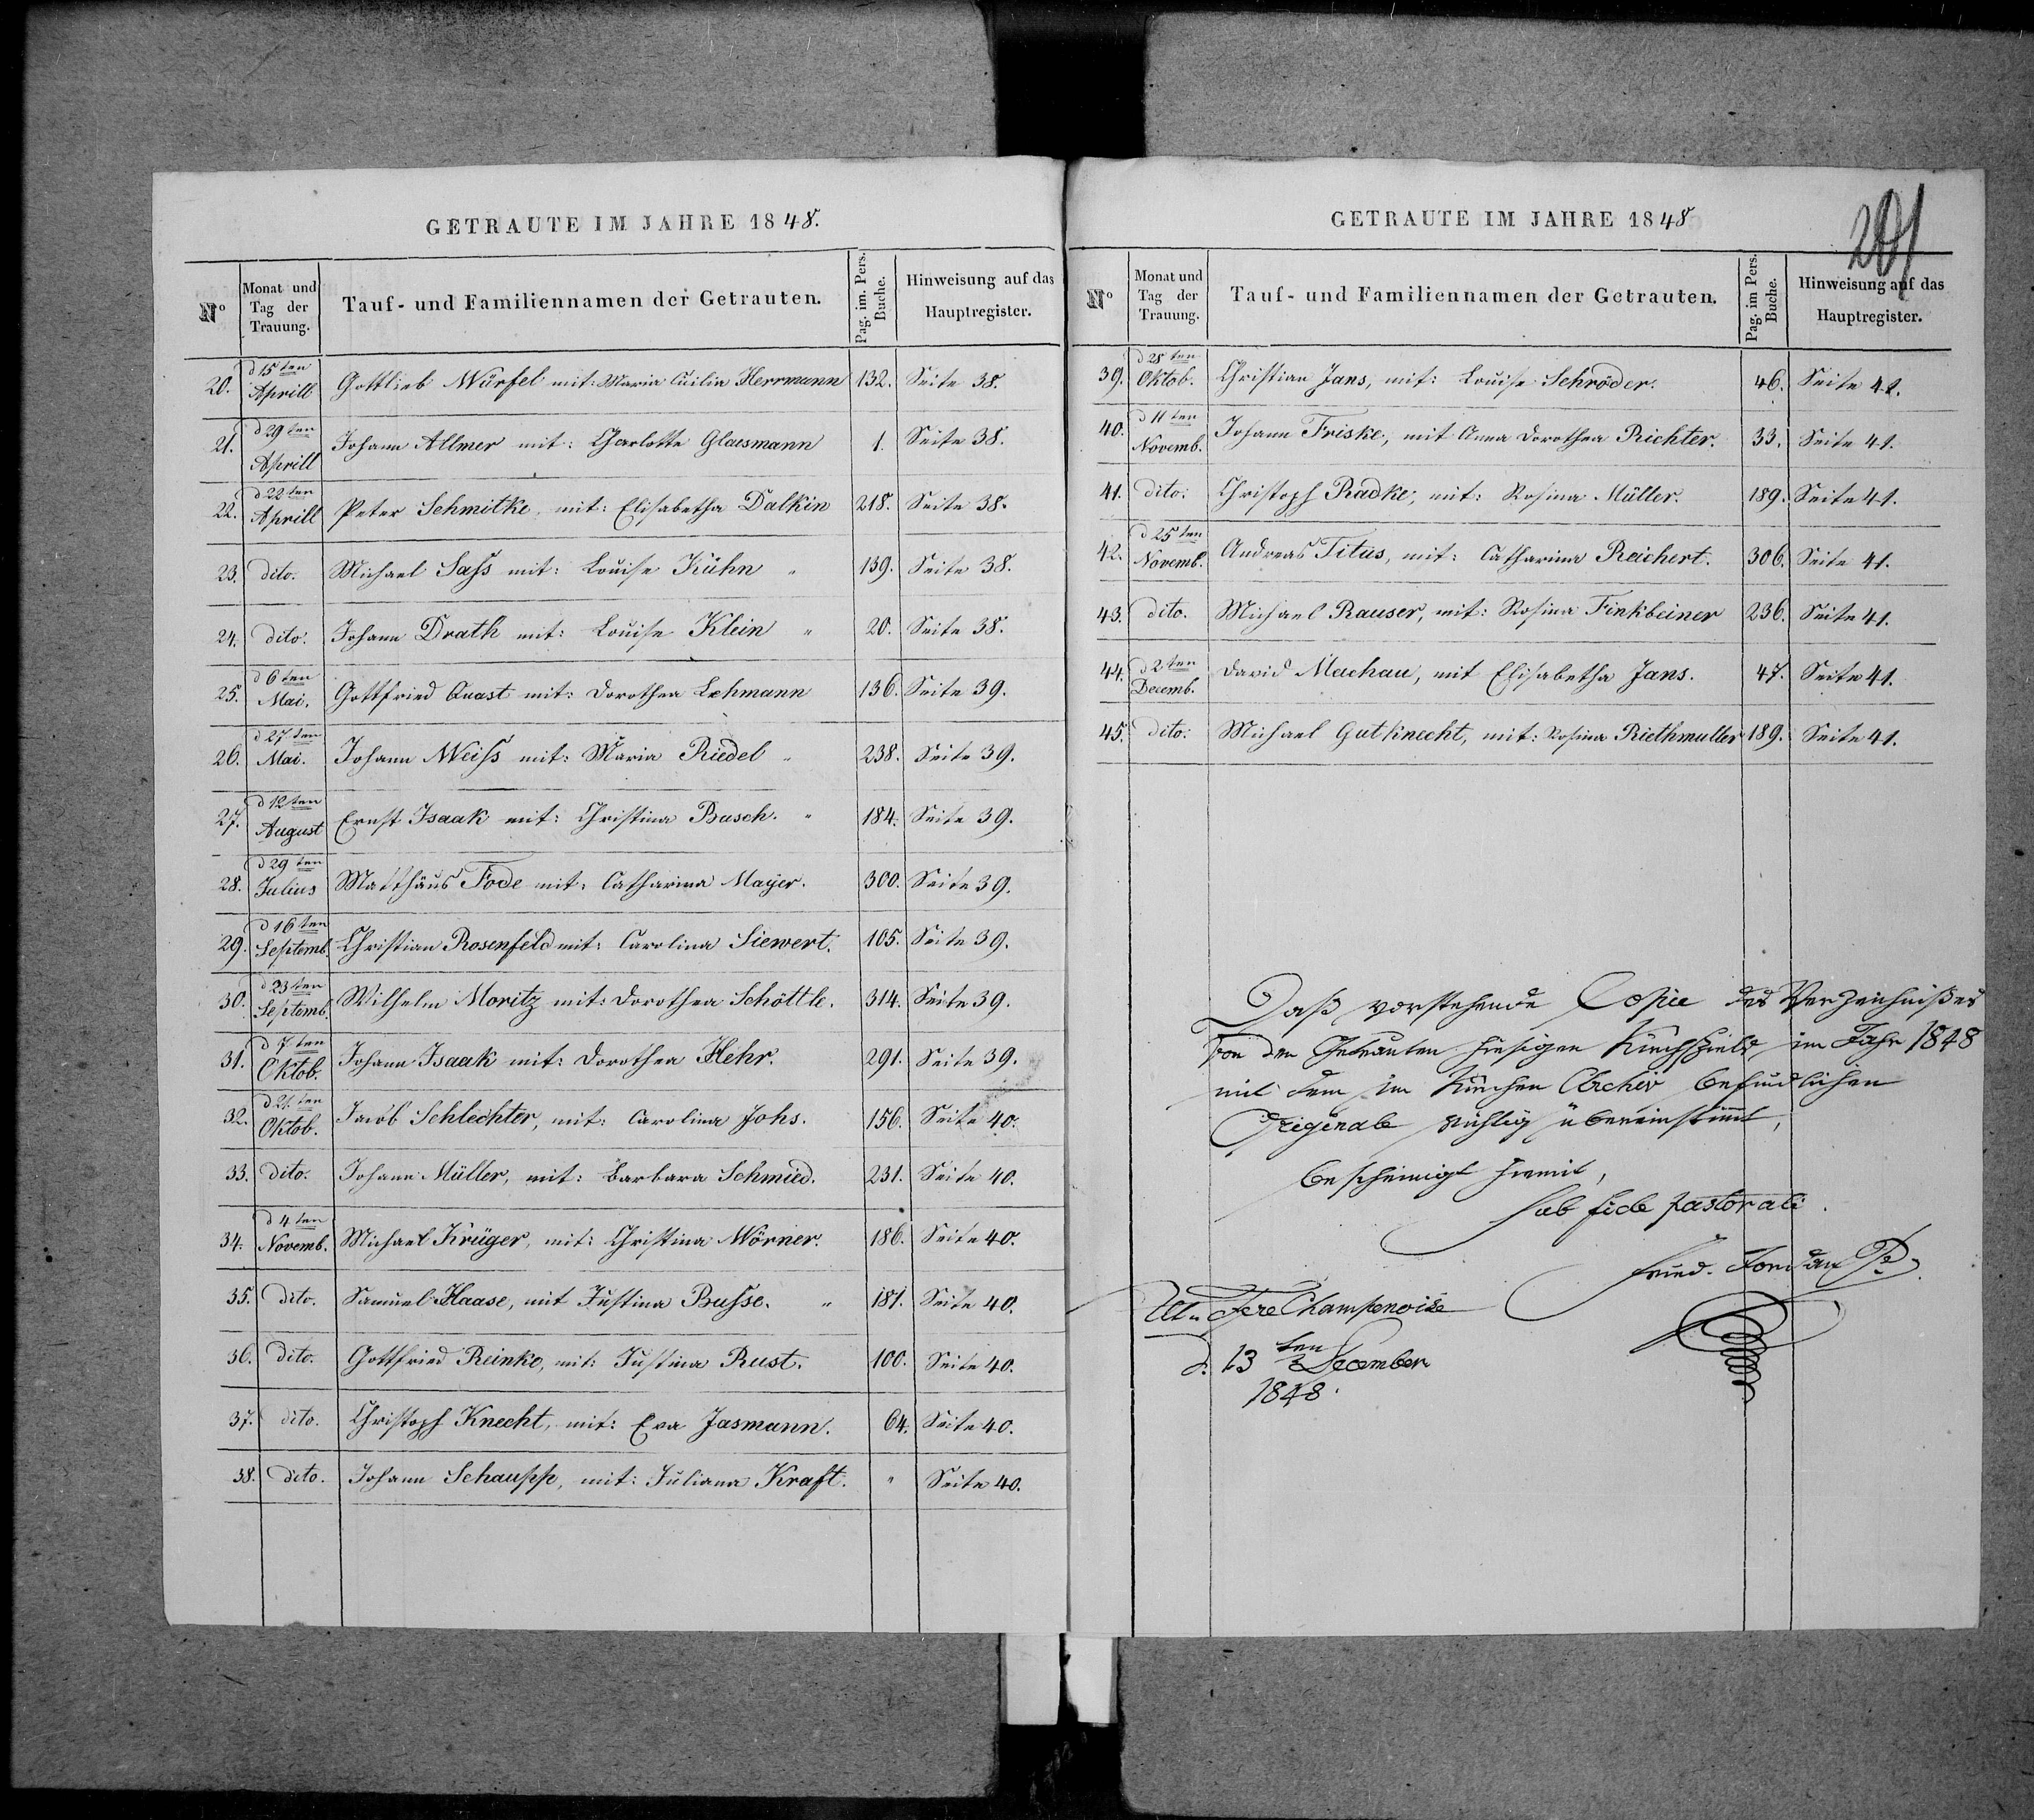 GETRAUTE IM JAHRE 1848.
Nº Monat und Tag der Trauung. Tauf- und Familiennamen der Getrauten. Pag. im. Pers. Buche. Hinweisung auf das Hauptregister.
20. d 15ten Aprill Gottlieb Würfel mit: Maria Herrmann 132. Seite 38.
21. d 29ten Aprill Johann Allmer mit: Charlotte Glaesmann 1. Seite 38.
22. d 22ten Aprill Peter Schmitke, mit: Elisabetha Dalkin 218. Seite 38.
23. dito. Michael Saſs mit: Louise Kühn " 139. Seite 38.
24. dito. Johann Drath mit: Louise Klein " 20. Seite 38.
25. d 6ten Mai. Gottfried Quast mit: Dorothea Lehmann 136. Seite 39.
26. d 27ten Mai. Johann Weiſs mit: Maria Riedel " 238. Seite 39.
27. d 12ten August Ernst Isaak mit: Christina Busch. " 184. Seite 39.
28. d 29ten Julius Matthäus Fode mit: Catharina Mayer. 300. Seite 39.
29. d 16ten Septemb. Christian Rosenfeld mit: Carolina Siewert. 105. Seite 39.
30. d 23ten Septemb. Wilhelm Moritz mit: Dorothea Schöttle. 314. Seite 39.
31. d 7ten Oktob. Johann Isaak mit: Dorothea Hehr. 291. Seite 39.
32. d 21ten Oktob. Jacob Schlechter, mit: Carolina Johs. 156. Seite 40.
33. dito. Johann Müller, mit: Barbara Schmied. 231. Seite 40.
34. d 4ten Novemb. Michael Krüger, mit: Christina Wörner. 186. Seite 40.
35. dito. Samuel Haase, mit Justina Buſse. " 181. Seite 40.
36. dito. Gottfried Reinke, mit: Justina Rust. 100. Seite 40.
37. dito. Christoph Knecht, mit: Eva Jasmann. 64. Seite 40.
38. dito. Johann Schaupp, mit: Juliana Kraft. " Seite 40.
GETRAUTE IM JAHRE 1848
201
Nº Monat und Tag der Trauung. Tauf- und Familiennamen der Getrauten. Pag. im Pers. Buche. Hinweisung auf das Hauptregister.
39. d 28ten Oktob. Christian Jans, mit: Louise Schröder. 46. Seite 41.
40. d 11ten Novemb. Johann Friske, mit Anna Dorothea Richter. 33. Seite 41.
41. dito. Christoph Radke, mit: Rosina Müller. 189. Seite 41.
42. d 25ten Novemb. Andreas Titus, mit: Catharina Reichert. 306. Seite 41.
43. dito. Michael Rauser, mit: Rosina Finkbeiner 236. Seite 41.
44. d 2ten Decemb. David Machau, mit Elisabetha Jans. 47. Seite 41.
45. dito. Michael Gutknecht, mit: Rosina Riethmuller 189. Seite 41.
Daß vorstehende Copie des Verzeichnißes
von den Getrauten hiesigen Kirchspiels im Jahr 1848
mit dem im Kirchen Archiv befindlichen
Originale richtig übereinstimmt,
bescheinigt hiemit,
sub fide pastorali.
Fried. Jordan P.
Alt- Fere Champenoise
d. 13ten December
1848.